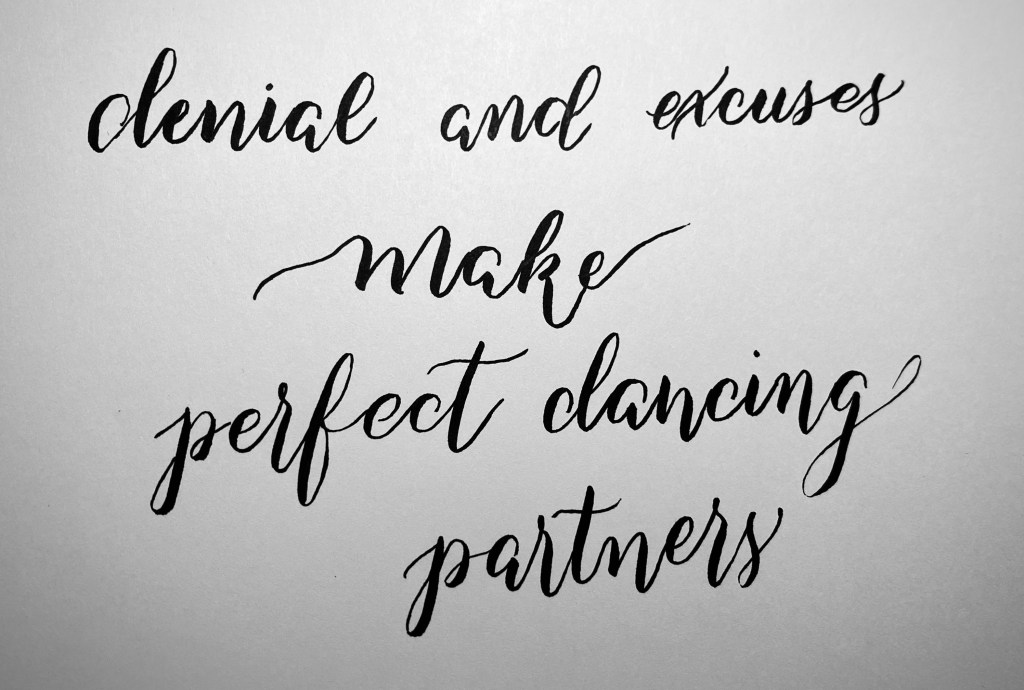 denial and excuses
make
perfect dancing
partners